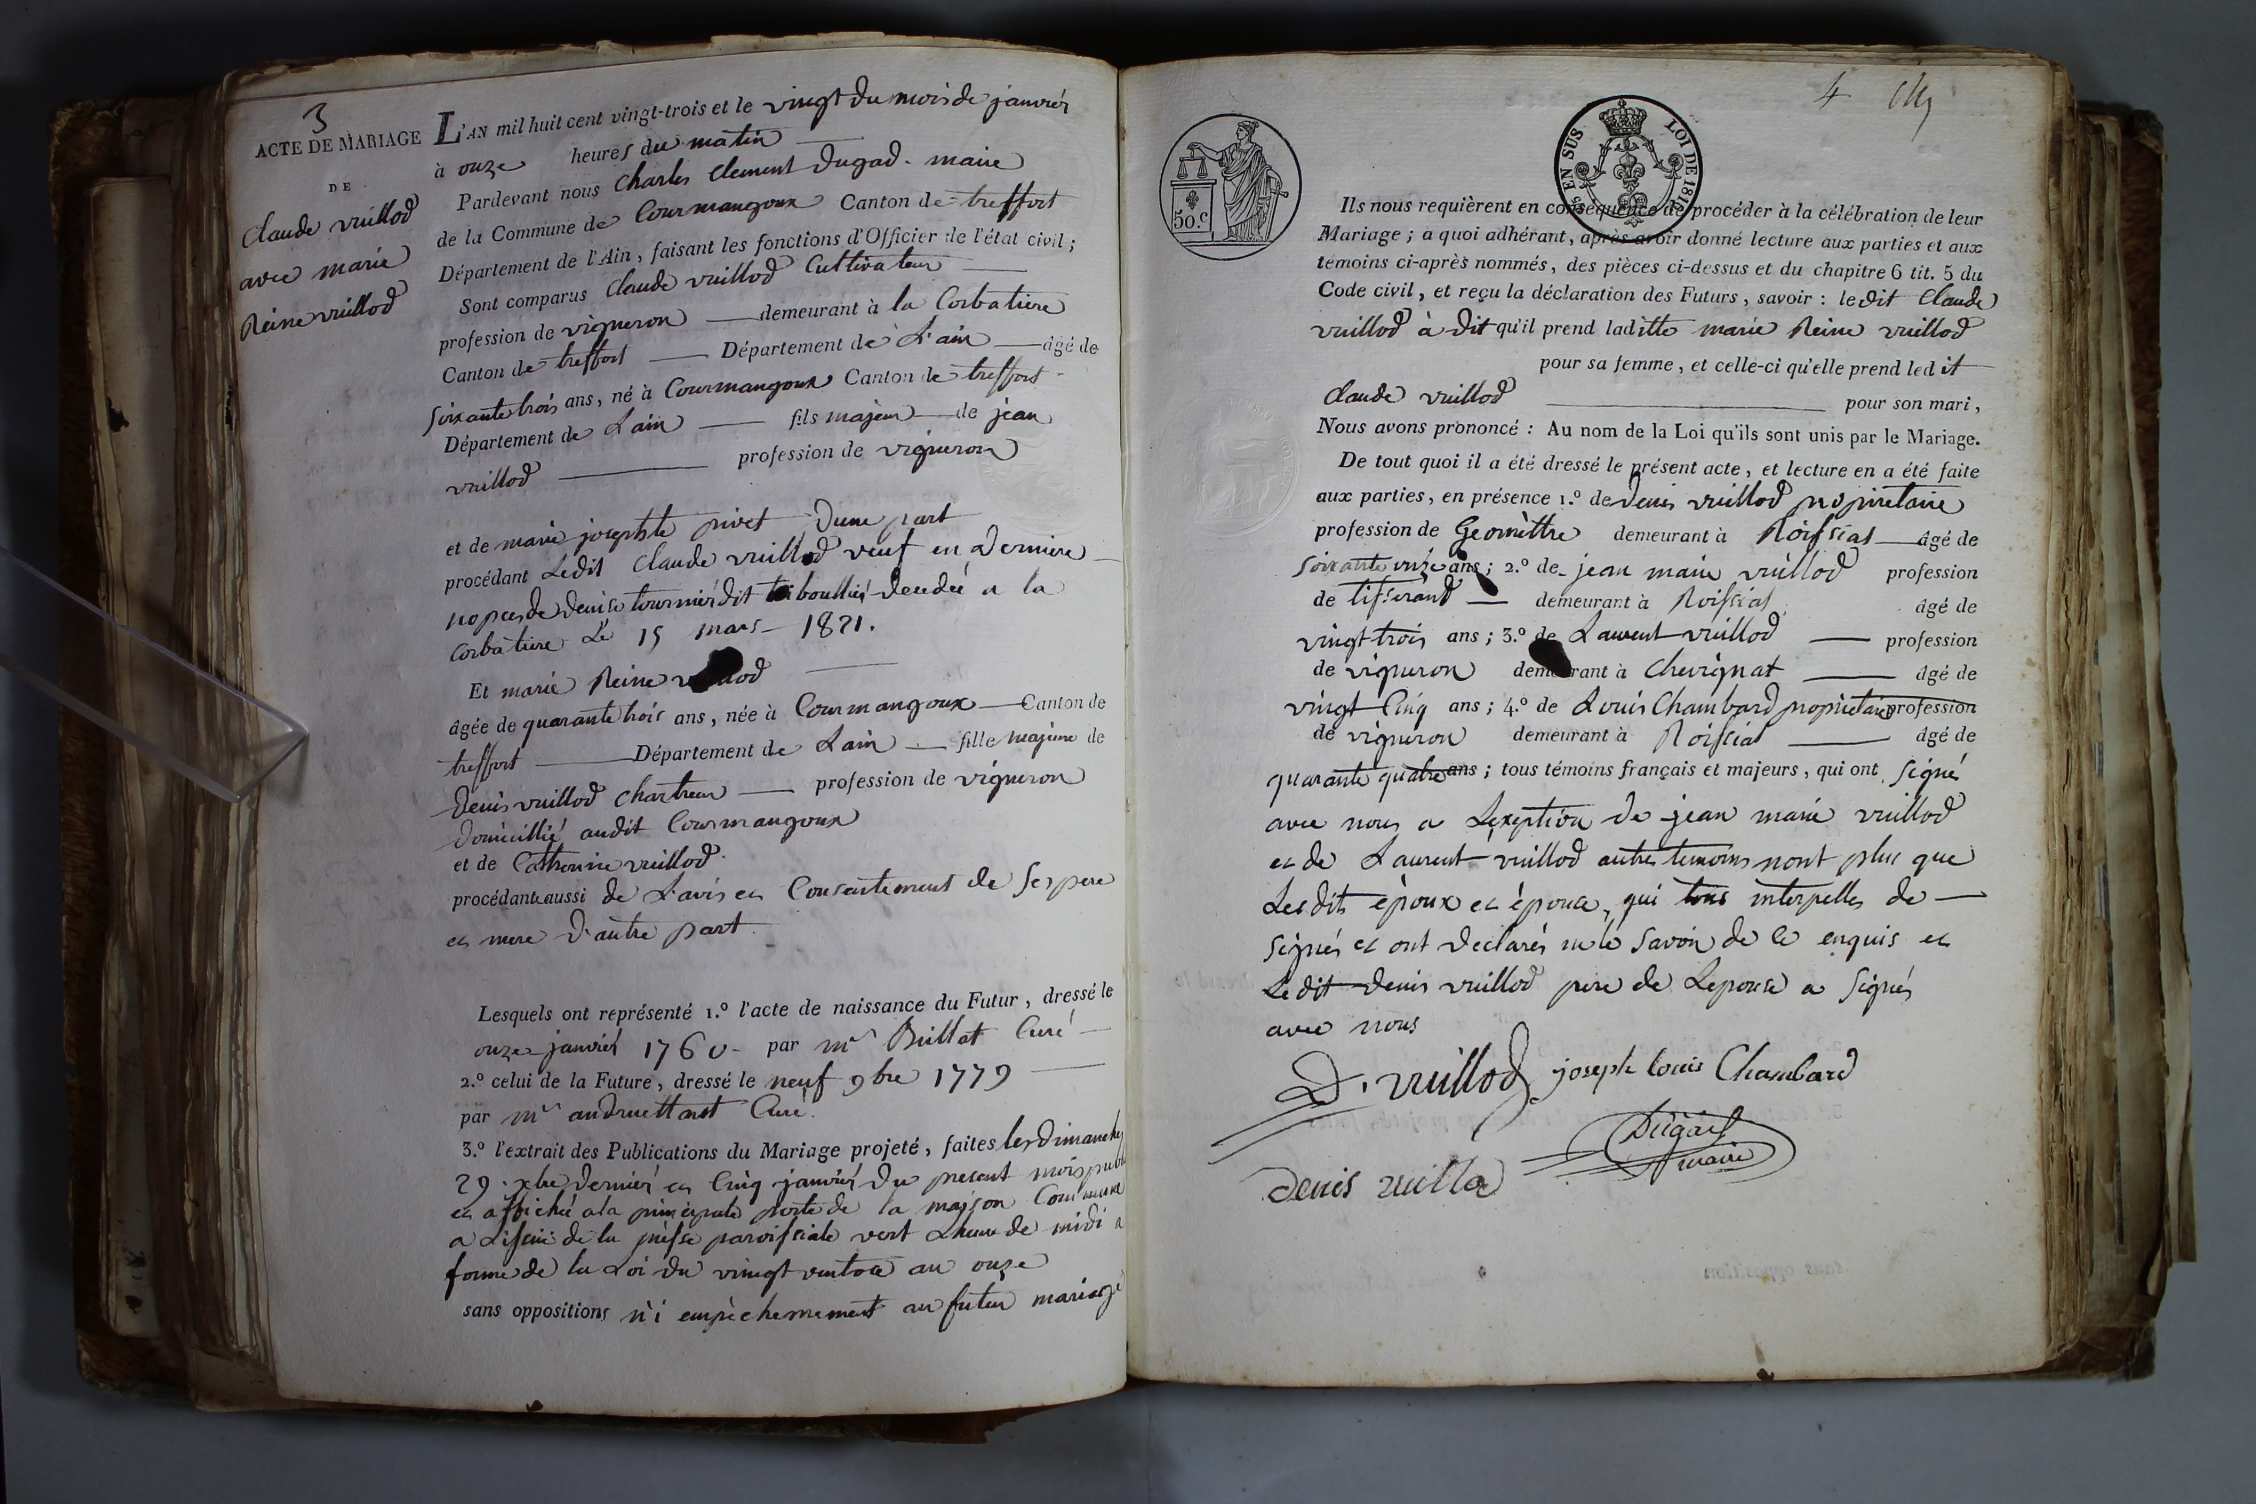 3
ACTE DE MARIAGE
DE
Claude vuillod
avec marie
Reine vuillod
L'AN mil huit cent vingt-trois et le vingt du mois de janvier
à onze heures du matin
Pardevant nous Charles Clement Dugad. maire
de la Commune de Courmangoux Canton de treffort
Département de l'Ain, faisant les fonctions d'Officier de l'état civil;
Sont comparus Claude vuillod Cultivateur
profession de vigneron demeurant à la Corbatiere
Canton de treffort Département de L'ain âgé de
soixante trois ans, né à Courmangoux Canton de treffort
Département de Lain fils majeur de jean
vuillod profession de vigneron
et de marie josephte pivet d'une part
procédant Ledit Claude vuillod veuf en Derniere
nopces de denise tournier dit boullié decedée a la
Corbatiere Le 15 mars 1821.
Et marie Reine vuillod
âgée de quarante trois ans, née à Courmangoux Canton de
treffort Département de Lain fille majeure de
Denis vuillod chartreux profession de vigneron
Domicillié audit Courmangoux
et de Catherine vuillod
procédante aussi de L'avis et Consentement de ses pere
et mere d'autre part.
Lesquels ont représenté 1.º l'acte de naissance du Futur, dressé le
onze janvier 1760 par mr Buillat Curé
2.º celui de la Future, dressé le neuf 9bre 1779
par mr Curé.
3.º l'extrait des Publications du Mariage projeté, faites les dimanches
29 xbre dernier et Cinq janvier du present mois
et affiché a la principale porte de la maison Commune
a Lissuë de la messe paroissiale vert Lheure de midi a
forme de la Loi du vingt ventose an onze
sans oppositions ni empêchemement au futur mariage
4
5 EN SUS LOI DE 1816
50.c
Ils nous requièrent en conséquence de procéder à la célébration de leur
Mariage; a quoi adhérant, après avoir donné lecture aux parties et aux
témoins ci-après nommés, des pièces ci-dessus et du chapitre 6 tit. 5 du
Code civil, et reçu la déclaration des Futurs, savoir: ledit Claude
vuillod à dit qu'il prend laditte marie Reine vuillod
pour sa femme, et celle-ci qu'elle prend ledit
Claude vuillod pour son mari,
Nous avons prononcé: Au nom de la Loi qu'ils sont unis par le Mariage.
De tout quoi il a été dressé le présent acte, et lecture en a été faite
aux parties, en présence 1.º de Denis vuillod propriétaire
profession de Geomèttre demeurant à Roissiat âgé de
soixante onze ans; 2.º de jean marie vuillod profession
de tisserand demeurant à Roissiat âgé de
vingt trois ans; 3.º de Laurent vuillod profession
de vigneron demeurant à Chevignat âgé de
vingt Cinq ans; 4.º de Louis Chambard propriétaire profession
de vigneron demeurant à Roissiat âgé de
quarante quatre ans; tous témoins français et majeurs, qui ont signé
avec nous a Lexeption de jean marie vuillod
et de Laurent vuillod autres temoins nont plus que
Lesdits époux et épouse, qui tous interpelles de
signés et ont declarés ne le savoir de ce enquis et
Ledit Denis vuillod pere de Lepouse a signés
avec nous
D. vuillod joseph louis Chambard
Dugad
maire
denis vuillod